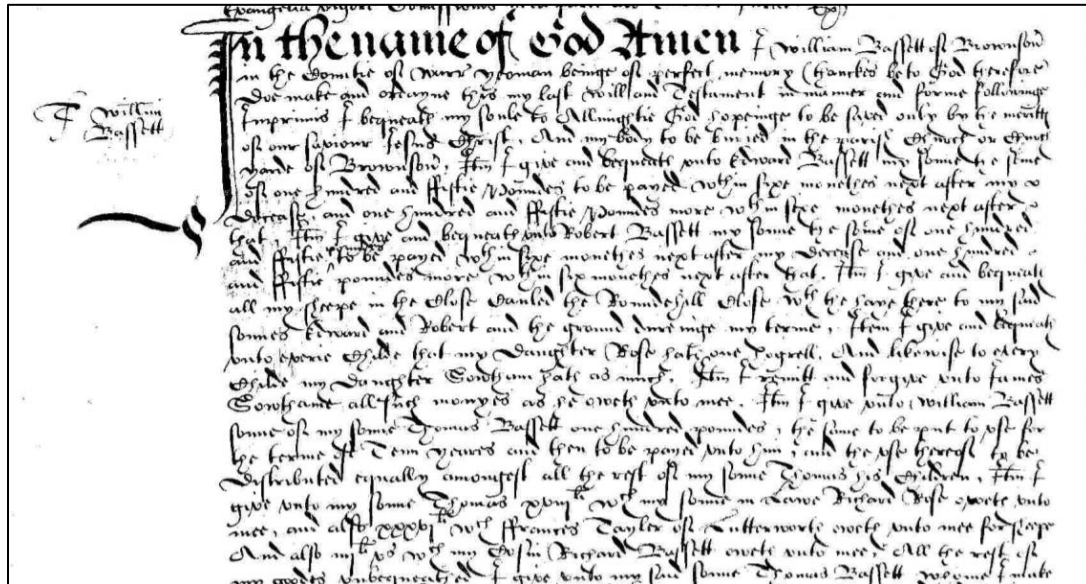 In the name of God Amen I William Bassett of Brownson
in the Countie of Warr yeoman beinge of perfect memory (thanckes be to God therefore
doe make and ordayne this my last will and Testament in manner and forme followinge
T Willmi
Bassett
Imprimis I bequeath my soule to Allmightie God hopeinge to be saved only by the meritts
of our saviour Jesus Christ, And my body to be buried in the parish Church or Church
yarde of Brownson, Itm I give and bequeate unto Edward Bassett my sonne the some
of one hundred and ffiftie Poundes to be payed wthin sixe monethes next after my
decease, and one hundred and ffiftie Poundes more wthin sixe monethes next after
that, Itm I give and bequeath unto Robert Bassett my sonne the some of one hundred
and ffiftie poundes to be payed wthin sixe monethes next after my decease and one hundred
and ffiftie poundes more wthin six monethes next after that. Itm I give and bequeath
all my sheepe in the Close Cauled the Roundehill Close wth the haye there to my said
sonnes Edward and Robert and the ground dureinge my terme, Item I give and bequeath
unto everie Childe that my Daughter Rose hath one hogrell, And likewise to every
Childe my Daughter Sowtham hath as much, Itm I remitt and forgive unto James
Sowthame all such monyes as he oweth unto mee, Itm I give unto William Bassett
sonne of my sonne Thomas Bassett one hundred poundes, the same to be put to use for
the terme of Tenn yeares and then to be payed unto him, and the use thereof to be
Distributed equally amongest all the rest of my sonne Thomas his Children, Itm I
give unto my sonne Thomas xviij li wch my sonne in Lawe Richard Rose owete unto
mee, and also xxxvj li wch ffrances Tayler of Lutterworth owete unto mee for sheepe
And also iij li vs wch my Cosin Richard Bassett owete unto mee, All the rest of
my goodes unbequeathed I give unto my said sonne Thomas Bassett whome I make